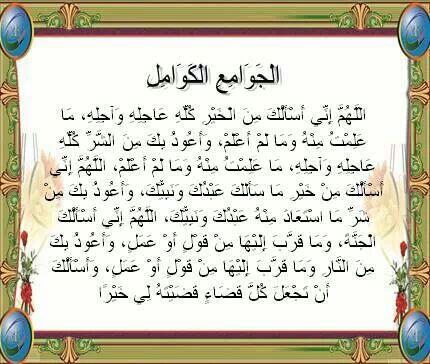 الجَوَامِع الكَوَامِل
اللَّهُمَّ إِنِّي أَسْأَلُكَ مِنَ الْخَيْرِ كُلِّهِ عَاجِلِهِ وَآجِلِهِ، مَا
عَلِمْتُ مِنْهُ وَمَا لَمْ أَعْلَمْ، وَأَعُوذُ بِكَ مِنَ الشَّرِّ كُلِّهِ
عَاجِلِهِ وَآجِلِهِ، مَا عَلِمْتُ مِنْهُ وَمَا لَمْ أَعْلَمْ، اللَّهُمَّ إِنِّي
أَسْأَلُكَ مِنْ خَيْرِ مَا سَأَلَكَ عَبْدُكَ وَنَبِيُّكَ، وَأَعُوذُ بِكَ مِنْ
شَرِّ مَا اسْتَعَاذَ مِنْهُ عَبْدُكَ وَنَبِيُّكَ، اللَّهُمَّ إِنِّي أَسْأَلُكَ
الْجَنَّةَ، وَمَا قَرَّبَ إِلَيْهَا مِنْ قَوْلٍ أَوْ عَمَلٍ، وَأَعُوذُ بِكَ
مِنَ النَّارِ وَمَا قَرَّبَ إِلَيْهَا مِنْ قَوْلٍ أَوْ عَمَلٍ، وَأَسْأَلُكَ
أَنْ تَجْعَلَ كُلَّ قَضَاءٍ قَضَيْتَهُ لِي خَيْرًا